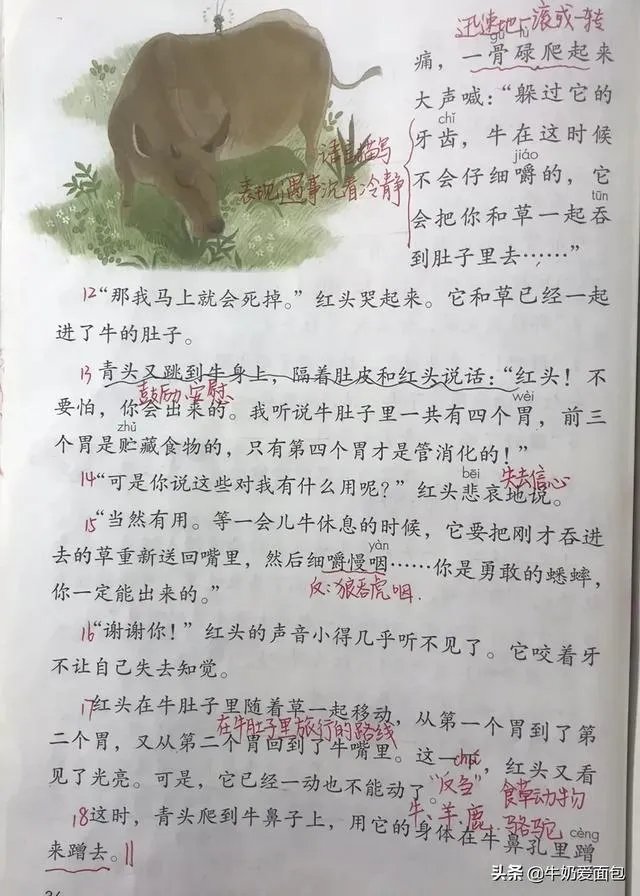 迅速地 滚或一转
gū lu
痛，一骨碌爬起来
大声喊：“躲过它的
chǐ
牙齿，牛在这时候
语言描写
jiáo
不会仔细嚼的，它
表现：遇事沉着冷静
tūn
会把你和草一起吞
到肚子里去……”
12“那我马上就会死掉。”红头哭起来。它和草已经一起
进了牛的肚子。
13青头又跳到牛身上，隔着肚皮和红头说话：“红头！不
鼓励、安慰
wèi
要怕，你会出来的。我听说牛肚子里一共有四个胃，前三
zhù
个胃是贮藏食物的，只有第四个胃才是管消化的！”
bēi
失去信心
14“可是你说这些对我有什么用呢？”红头悲哀地说。
15“当然有用。等一会儿牛休息的时候，它要把刚才吞进
yàn
去的草重新送回嘴里，然后细嚼慢咽……你是勇敢的蟋蟀，
反：狼吞虎咽.
你一定能出来的。”
16“谢谢你！”红头的声音小得几乎听不见了。它咬着牙
不让自己失去知觉。
17红头在牛肚子里随着草一起移动，从第一个胃到了第
在牛肚子里旅行的路线
二个胃，又从第二个胃回到了牛嘴里。这一，红头又看
见了光亮。可是，它已经一动也不能动了。
“反刍” 食草动物
牛、羊、鹿、骆驼
18这时，青头爬到牛鼻子上，用它的身体在牛鼻孔里蹭
cèng
来蹭去。
头条 @牛奶爱面包